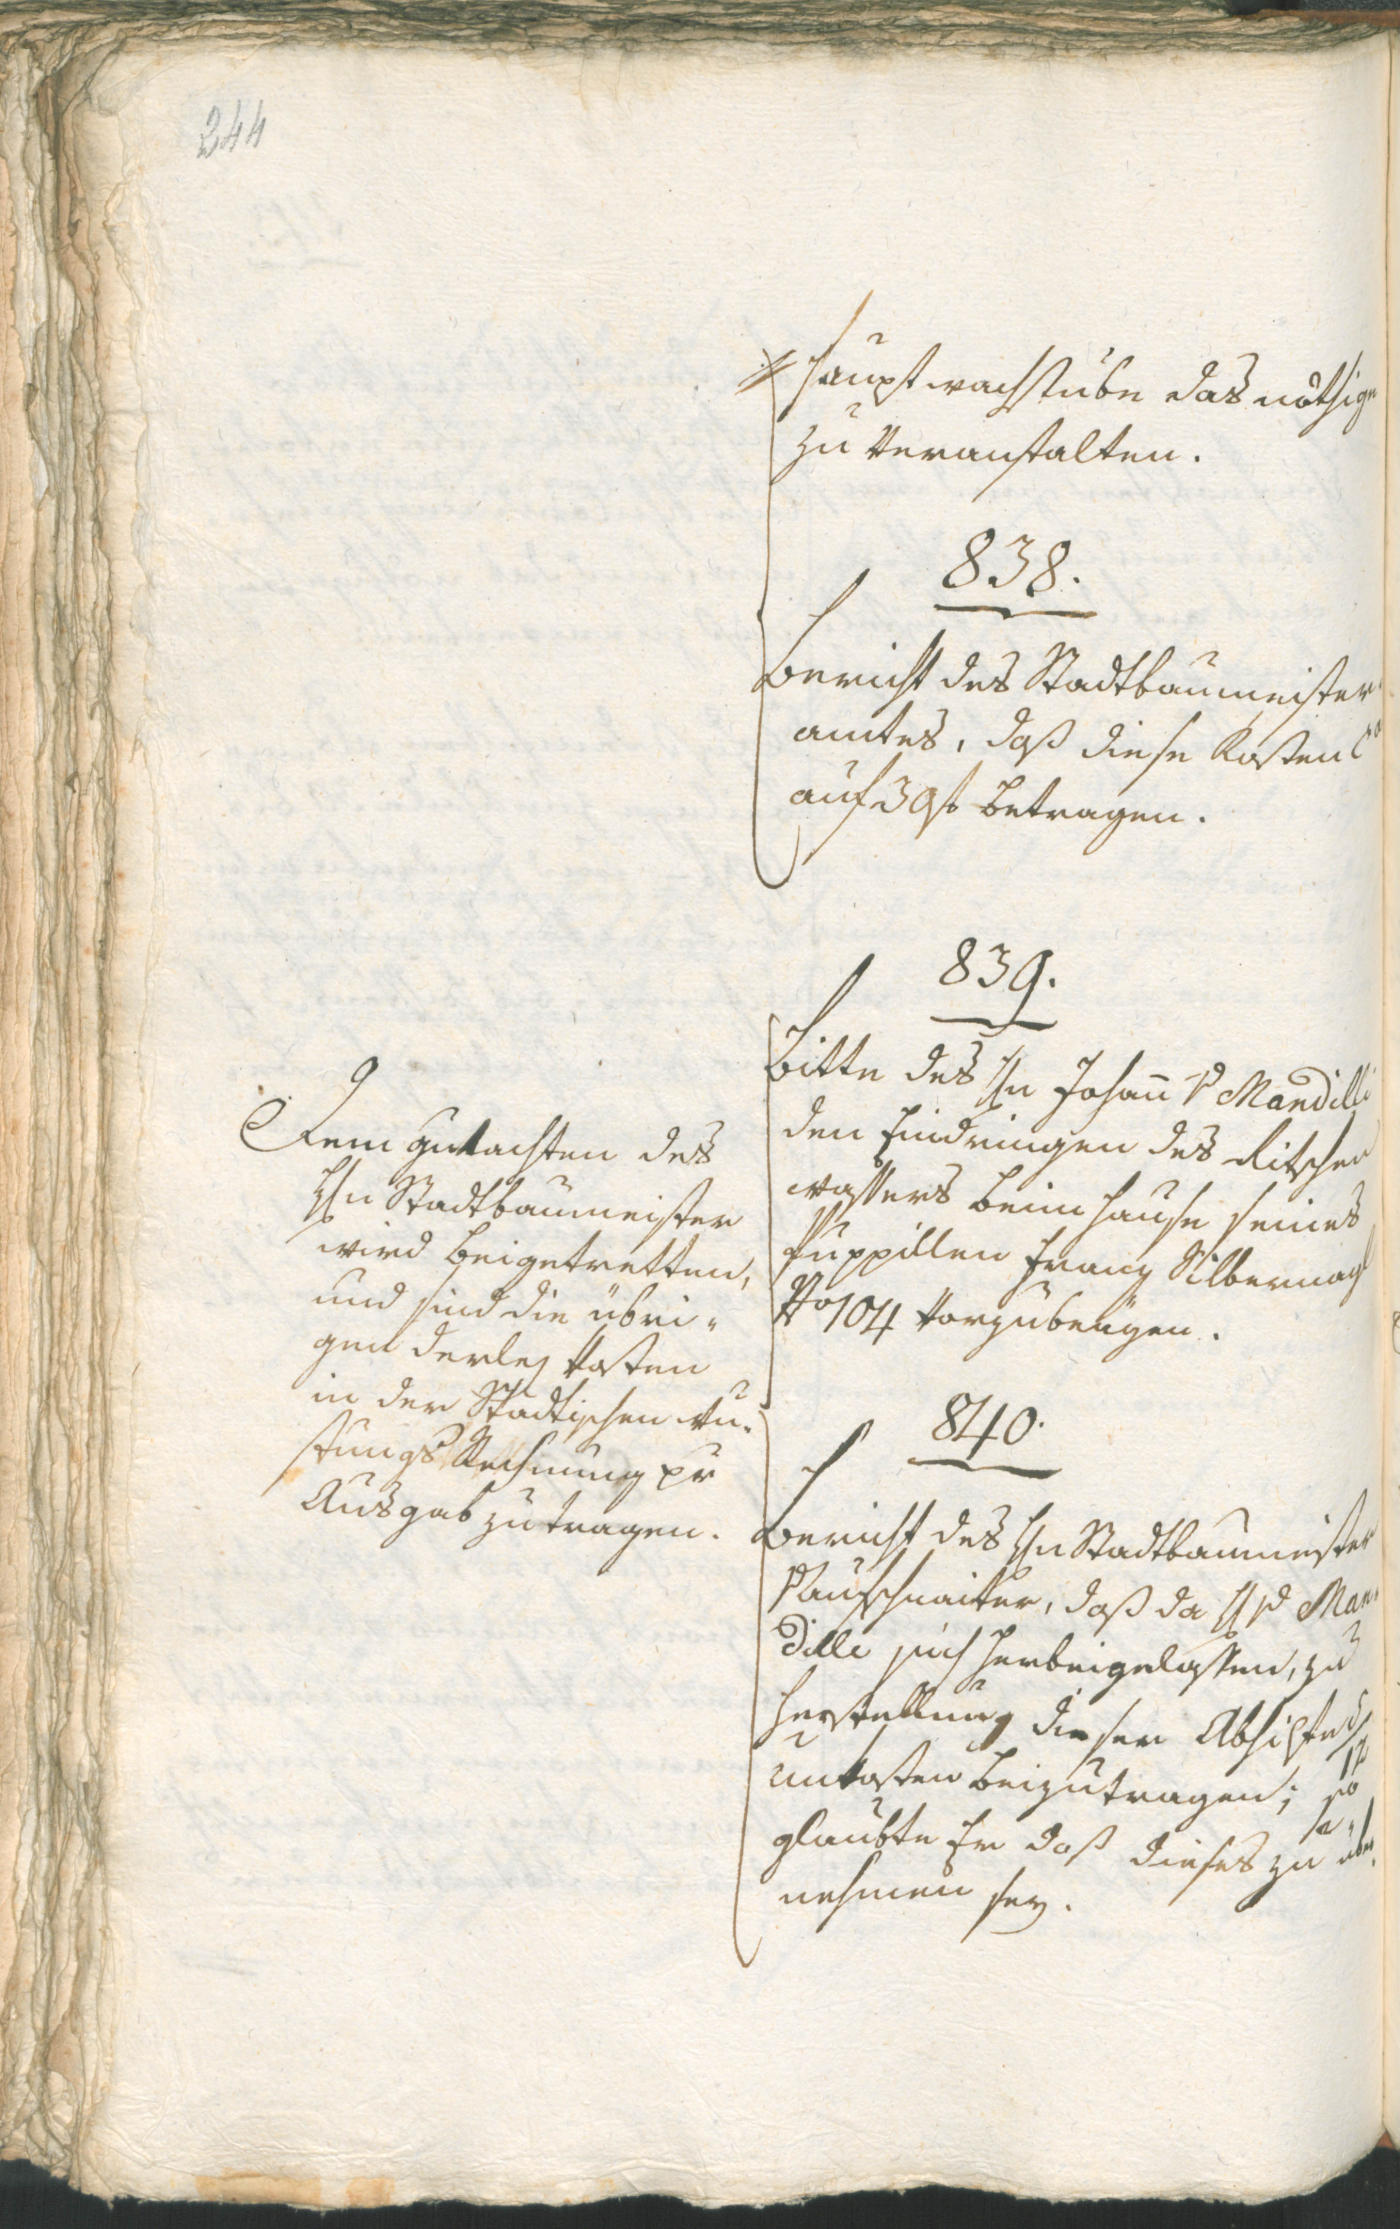 244
Hauptwachstube das nöthige
zu veranstalten.
838.
Bericht des Stadtbaumeister
amtes, daß diese Kosten
auf 39 f betragen.
839.
Bitte des Hn Johann v Mandilli
den Eindringen des Ritschen
wassers beim Hause seines
Puppillen Franz Silbernagl
No 104 vorzubeugen.
Dem Gutachten des
Hn Stadtbaumeister
wird beigetretten,
und sind die übri-
gen derley Kosten
in der Stadtischen
Rechnung pr
Ausgab zu tragen.
840.
Bericht des Hn Stadtbaumeister
daß da H v Man-
dilli sich herbeigelassen, zu
Herstellung dieser
Unkosten beizutragen; so
glaubte Er daß dieses zu über-
nehmen sey.